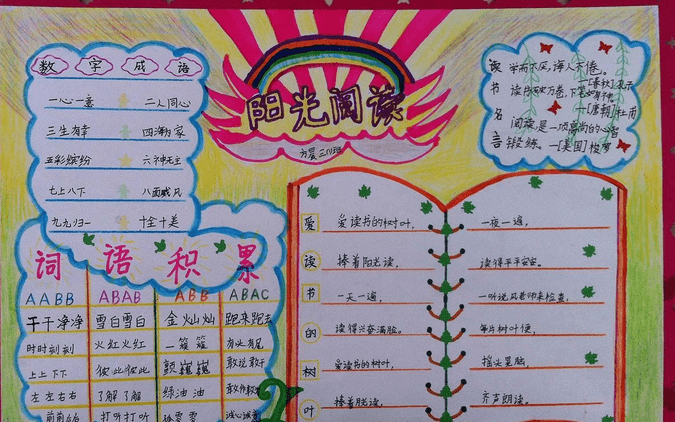 数字成语
一心一意 二人同心
三生有幸 四海为家
五彩缤纷 六神无主
七上八下 八面威风
九九归一 十全十美
阳光阅读
方晨 三(1)班
读书名言
学而不厌,诲人不倦。
—[春秋]孔子
读书破万卷,下笔如有神。
—[唐朝]杜甫
阅读是一项高尚的心智
锻练。—[美国]梭罗
词语积累
AABB ABAB ABB ABAC
干干净净 雪白雪白 金灿灿 跑来跑去
时时刻刻 火红火红 一簇簇 有头有尾
上上下下 彼此彼此 颤巍巍 敢说敢干
左左右右 了解了解 绿油油
打听打听 诚心诚意
爱读书的树叶
爱读书的树叶,
捧着阳光读,
一天一遍,
读得兴奋满脸。
爱读书的树叶,
捧着脸读,
一夜一遍,
读得平平安安。
一听说风老师来检查,
每片树叶便,
摇头晃脑,
齐声朗读。